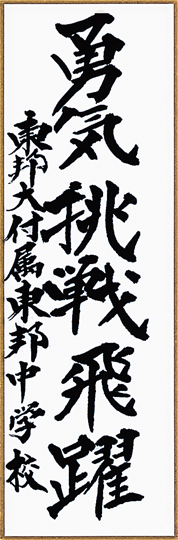 勇気挑戦飛躍
東邦大付属東邦中学校